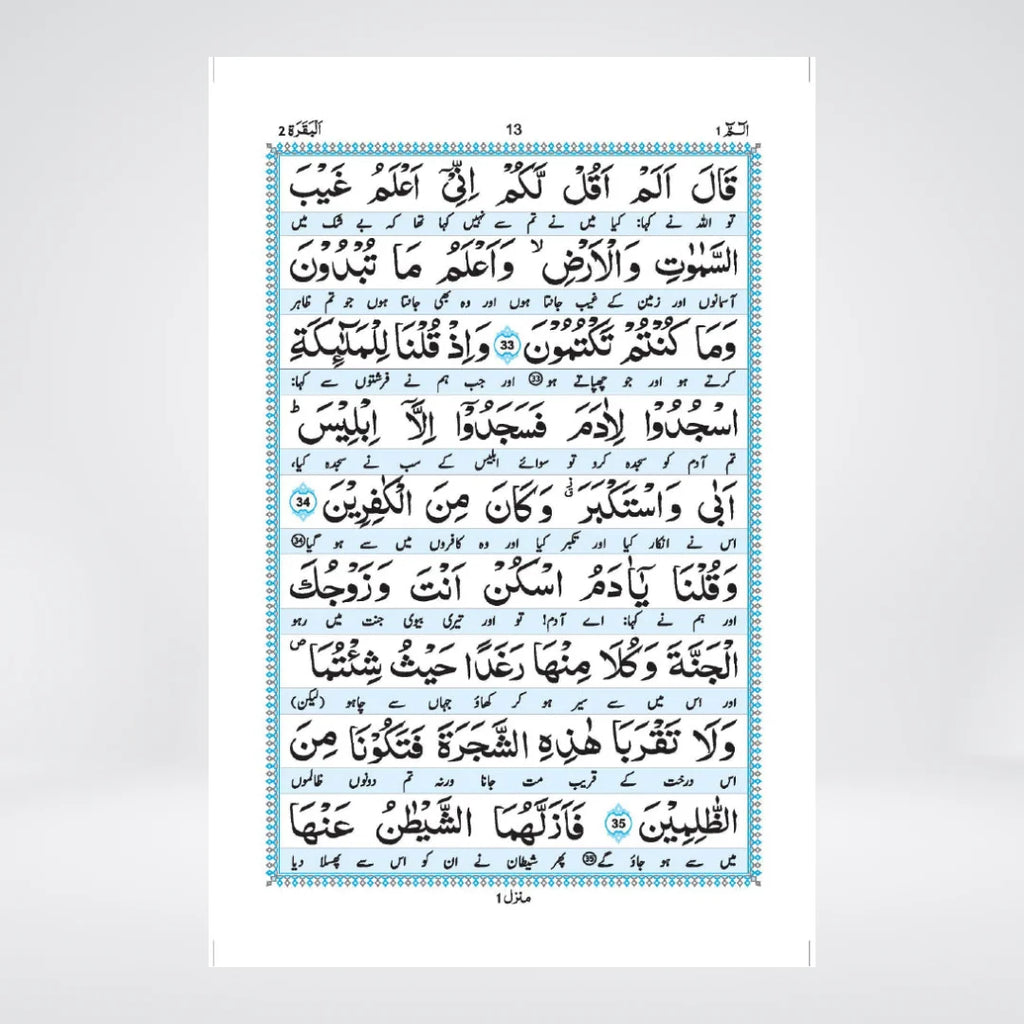 الٓمّٓ 1 13 اَلْبَقَرَة 2
قَالَ اَلَمْ اَقُلْ لَّكُمْ اِنِّیْۤ اَعْلَمُ غَیْبَ
تو اللہ نے کہا: کیا میں نے تم سے نہیں کہا تھا کہ بے شک میں
السَّمٰوٰتِ وَالْاَرْضِ ۙ وَاَعْلَمُ مَا تُبْدُوْنَ
آسمانوں اور زمین کے غیب جانتا ہوں اور وہ بھی جانتا ہوں جو تم ظاہر
وَمَا كُنْتُمْ تَكْتُمُوْنَ 33 وَاِذْ قُلْنَا لِلْمَلٰٓئِكَةِ
کرتے ہو اور جو چھپاتے ہو 33 اور جب ہم نے فرشتوں سے کہا:
اسْجُدُوْا لِاٰدَمَ فَسَجَدُوْۤا اِلَّاۤ اِبْلِیْسَ ؕ
تم آدم کو سجدہ کرو تو سوائے ابلیس کے سب نے سجدہ کیا،
اَبٰی وَاسْتَكْبَرَ ۫ۗ وَكَانَ مِنَ الْكٰفِرِیْنَ 34
اس نے انکار کیا اور تکبر کیا اور وہ کافروں میں سے ہو گیا 34
وَقُلْنَا یٰۤاٰدَمُ اسْكُنْ اَنْتَ وَزَوْجُكَ
اور ہم نے کہا: اے آدم! تو اور تیری بیوی جنت میں رہو
الْجَنَّةَ وَكُلَا مِنْهَا رَغَدًا حَیْثُ شِئْتُمَا ۪
اور اس میں سے سیر ہو کر کھاؤ جہاں سے چاہو (لیکن)
وَلَا تَقْرَبَا هٰذِهِ الشَّجَرَةَ فَتَكُوْنَا مِنَ
اس درخت کے قریب مت جانا ورنہ تم دونوں ظالموں
الظّٰلِمِیْنَ 35 فَاَزَلَّهُمَا الشَّیْطٰنُ عَنْهَا
میں سے ہو جاؤ گے 35 پھر شیطان نے ان کو اس سے پھسلا دیا
منزل 1